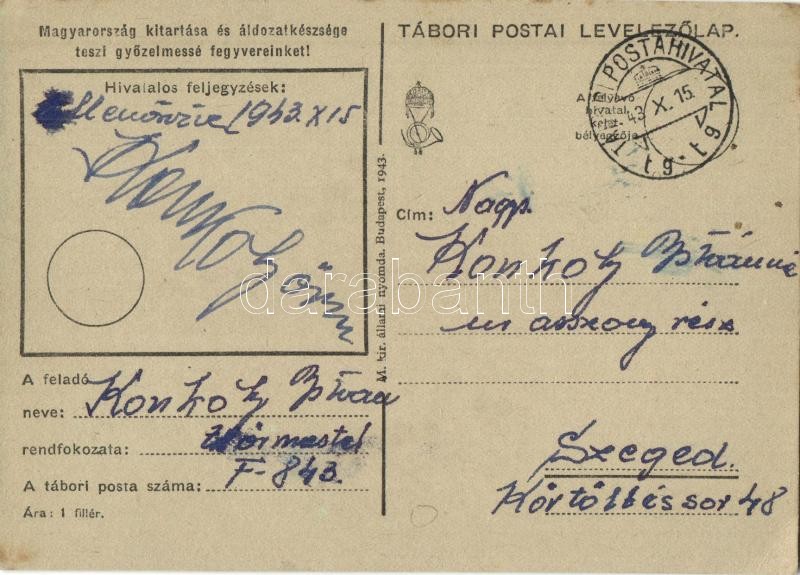 Magyarország kitartása és áldozatkészsége
teszi győzelmessé fegyvereinket!
Hivatalos feljegyzések:
Ellenőrizve 1943. X 15
A feladó
neve: Konkoly István
rendfokozata: őrmester
A tábori posta száma: F-843.
Ára: 1 fillér.
M. kir. állami nyomda, Budapest, 1943.
TÁBORI POSTAI LEVELEZŐLAP.
A felvevő
hivatal
kelet-
bélyegzője
TÁBORI POSTAHIVATAL
43 X. 15.
tg-tg
Cím: Nagys.
Konkoly Istvánné
úri asszony rész
Szeged.
Körtöltés sor 48
darabanth